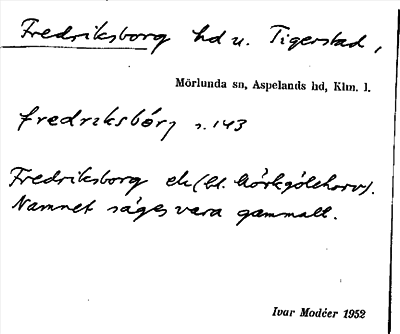 Fredriksborg hd u. Tigerstad,
Mörlunda sn, Aspelands hd, Klm. l.
fredrɩksbórj s. 143
Fredriksborg ek (bl. Mörkgölehorv).
Namnet säges vara gammalt.
Ivar Modéer 1952